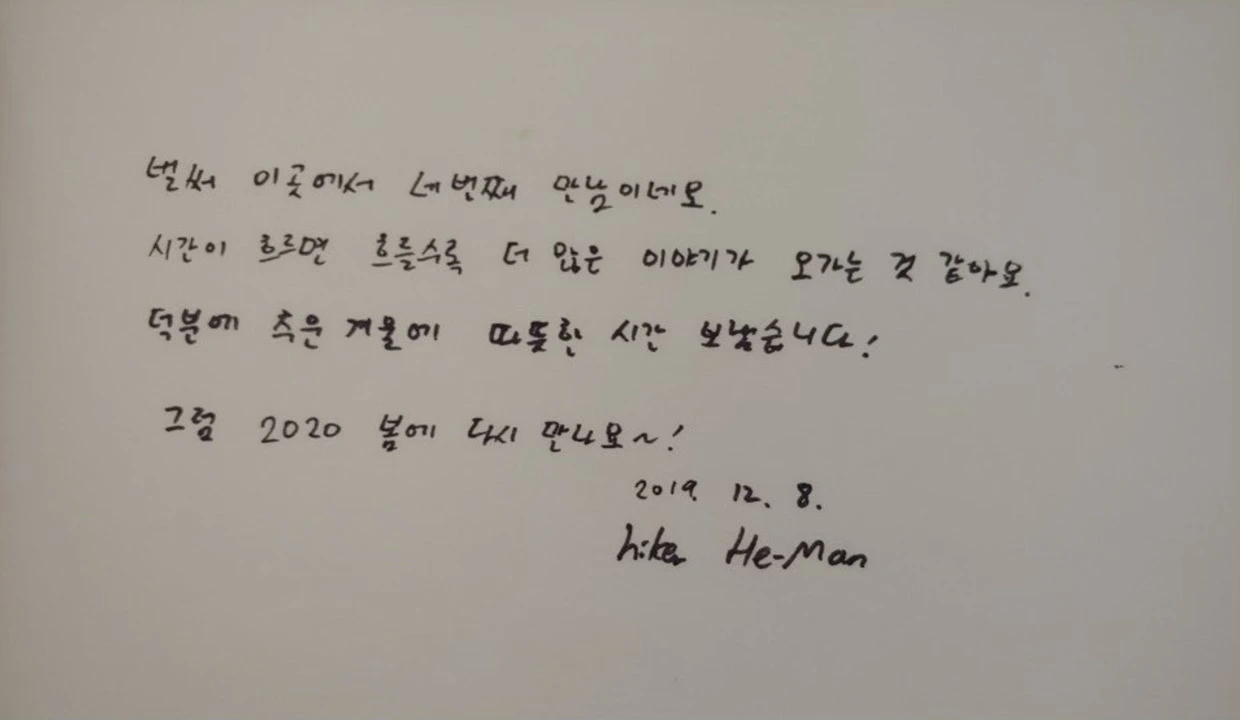 벌써 이곳에서 네번째 만남이네요.
시간이 흐르면 흐를수록 더 많은 이야기가 오가는 것 같아요.
덕분에 추운 겨울에 따뜻한 시간 보냈습니다!
그럼 2020 봄에 다시 만나요~!
2019. 12. 8.
hiker He-Man